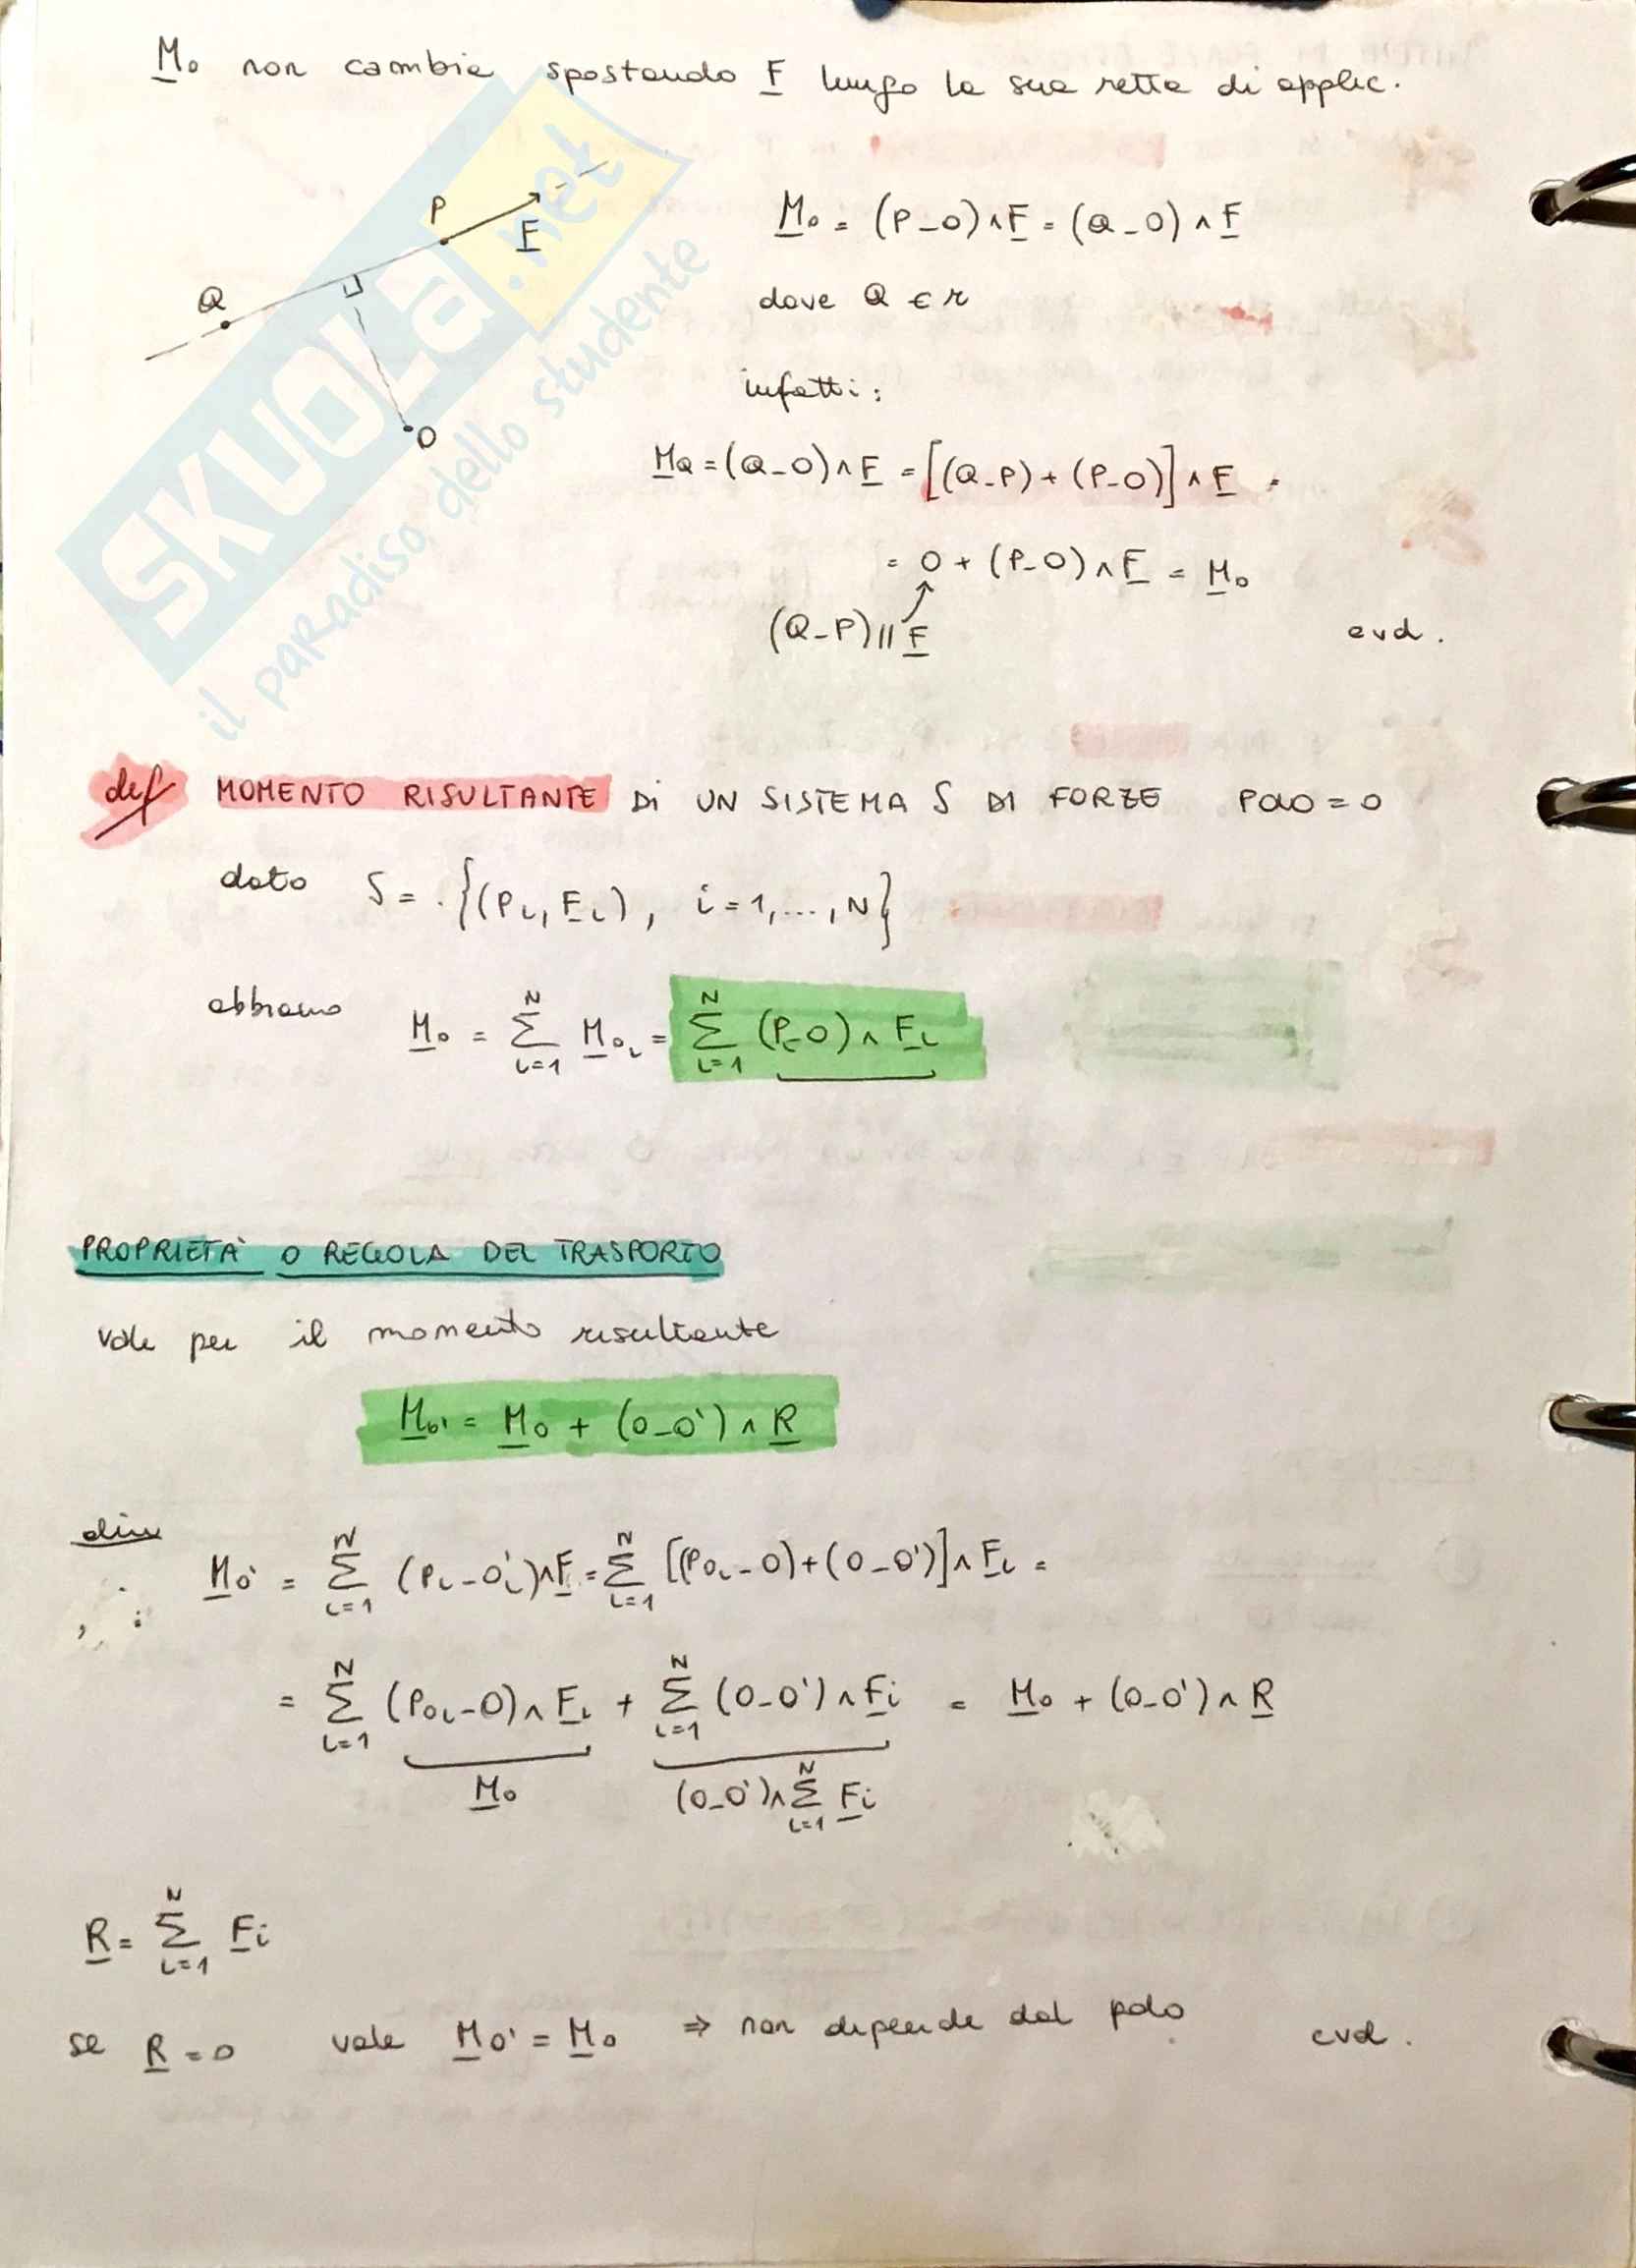 M₀ non cambia spostando F lungo la sua retta di applic.
P
F
Q
O
M₀ = (P-O)∧F = (Q-O)∧F
dove Q ∈ r
infatti:
M_Q = (Q-O)∧F = [(Q-P)+(P-O)]∧F =
= 0 + (P-O)∧F = M₀
(Q-P)∥F
cvd.
SKUOLA.net
il paradiso dello studente
def MOMENTO RISULTANTE DI UN SISTEMA S DI FORZE POLO = O
dato S = {(Pᵢ, Fᵢ), i=1,...,N}
abbiamo M₀ = Σ_{i=1}^{N} M₀ᵢ = Σ_{i=1}^{N} (Pᵢ-O)∧Fᵢ
PROPRIETÀ O REGOLA DEL TRASPORTO
vale per il momento risultante
M₀' = M₀ + (O-O')∧R
dim
M₀' = Σ_{i=1}^{N} (Pᵢ-O'ᵢ)∧F = Σ_{i=1}^{N} [(P₀ᵢ-O)+(O-O')]∧Fᵢ =
= Σ_{i=1}^{N} (P₀ᵢ-O)∧Fᵢ + Σ_{i=1}^{N} (O-O')∧Fᵢ = M₀ + (O-O')∧R
M₀ (O-O')∧Σ_{i=1}^{N} Fᵢ
R = Σ_{i=1}^{N} Fᵢ
se R = 0 vale M₀' = M₀ ⇒ non dipende dal polo cvd.